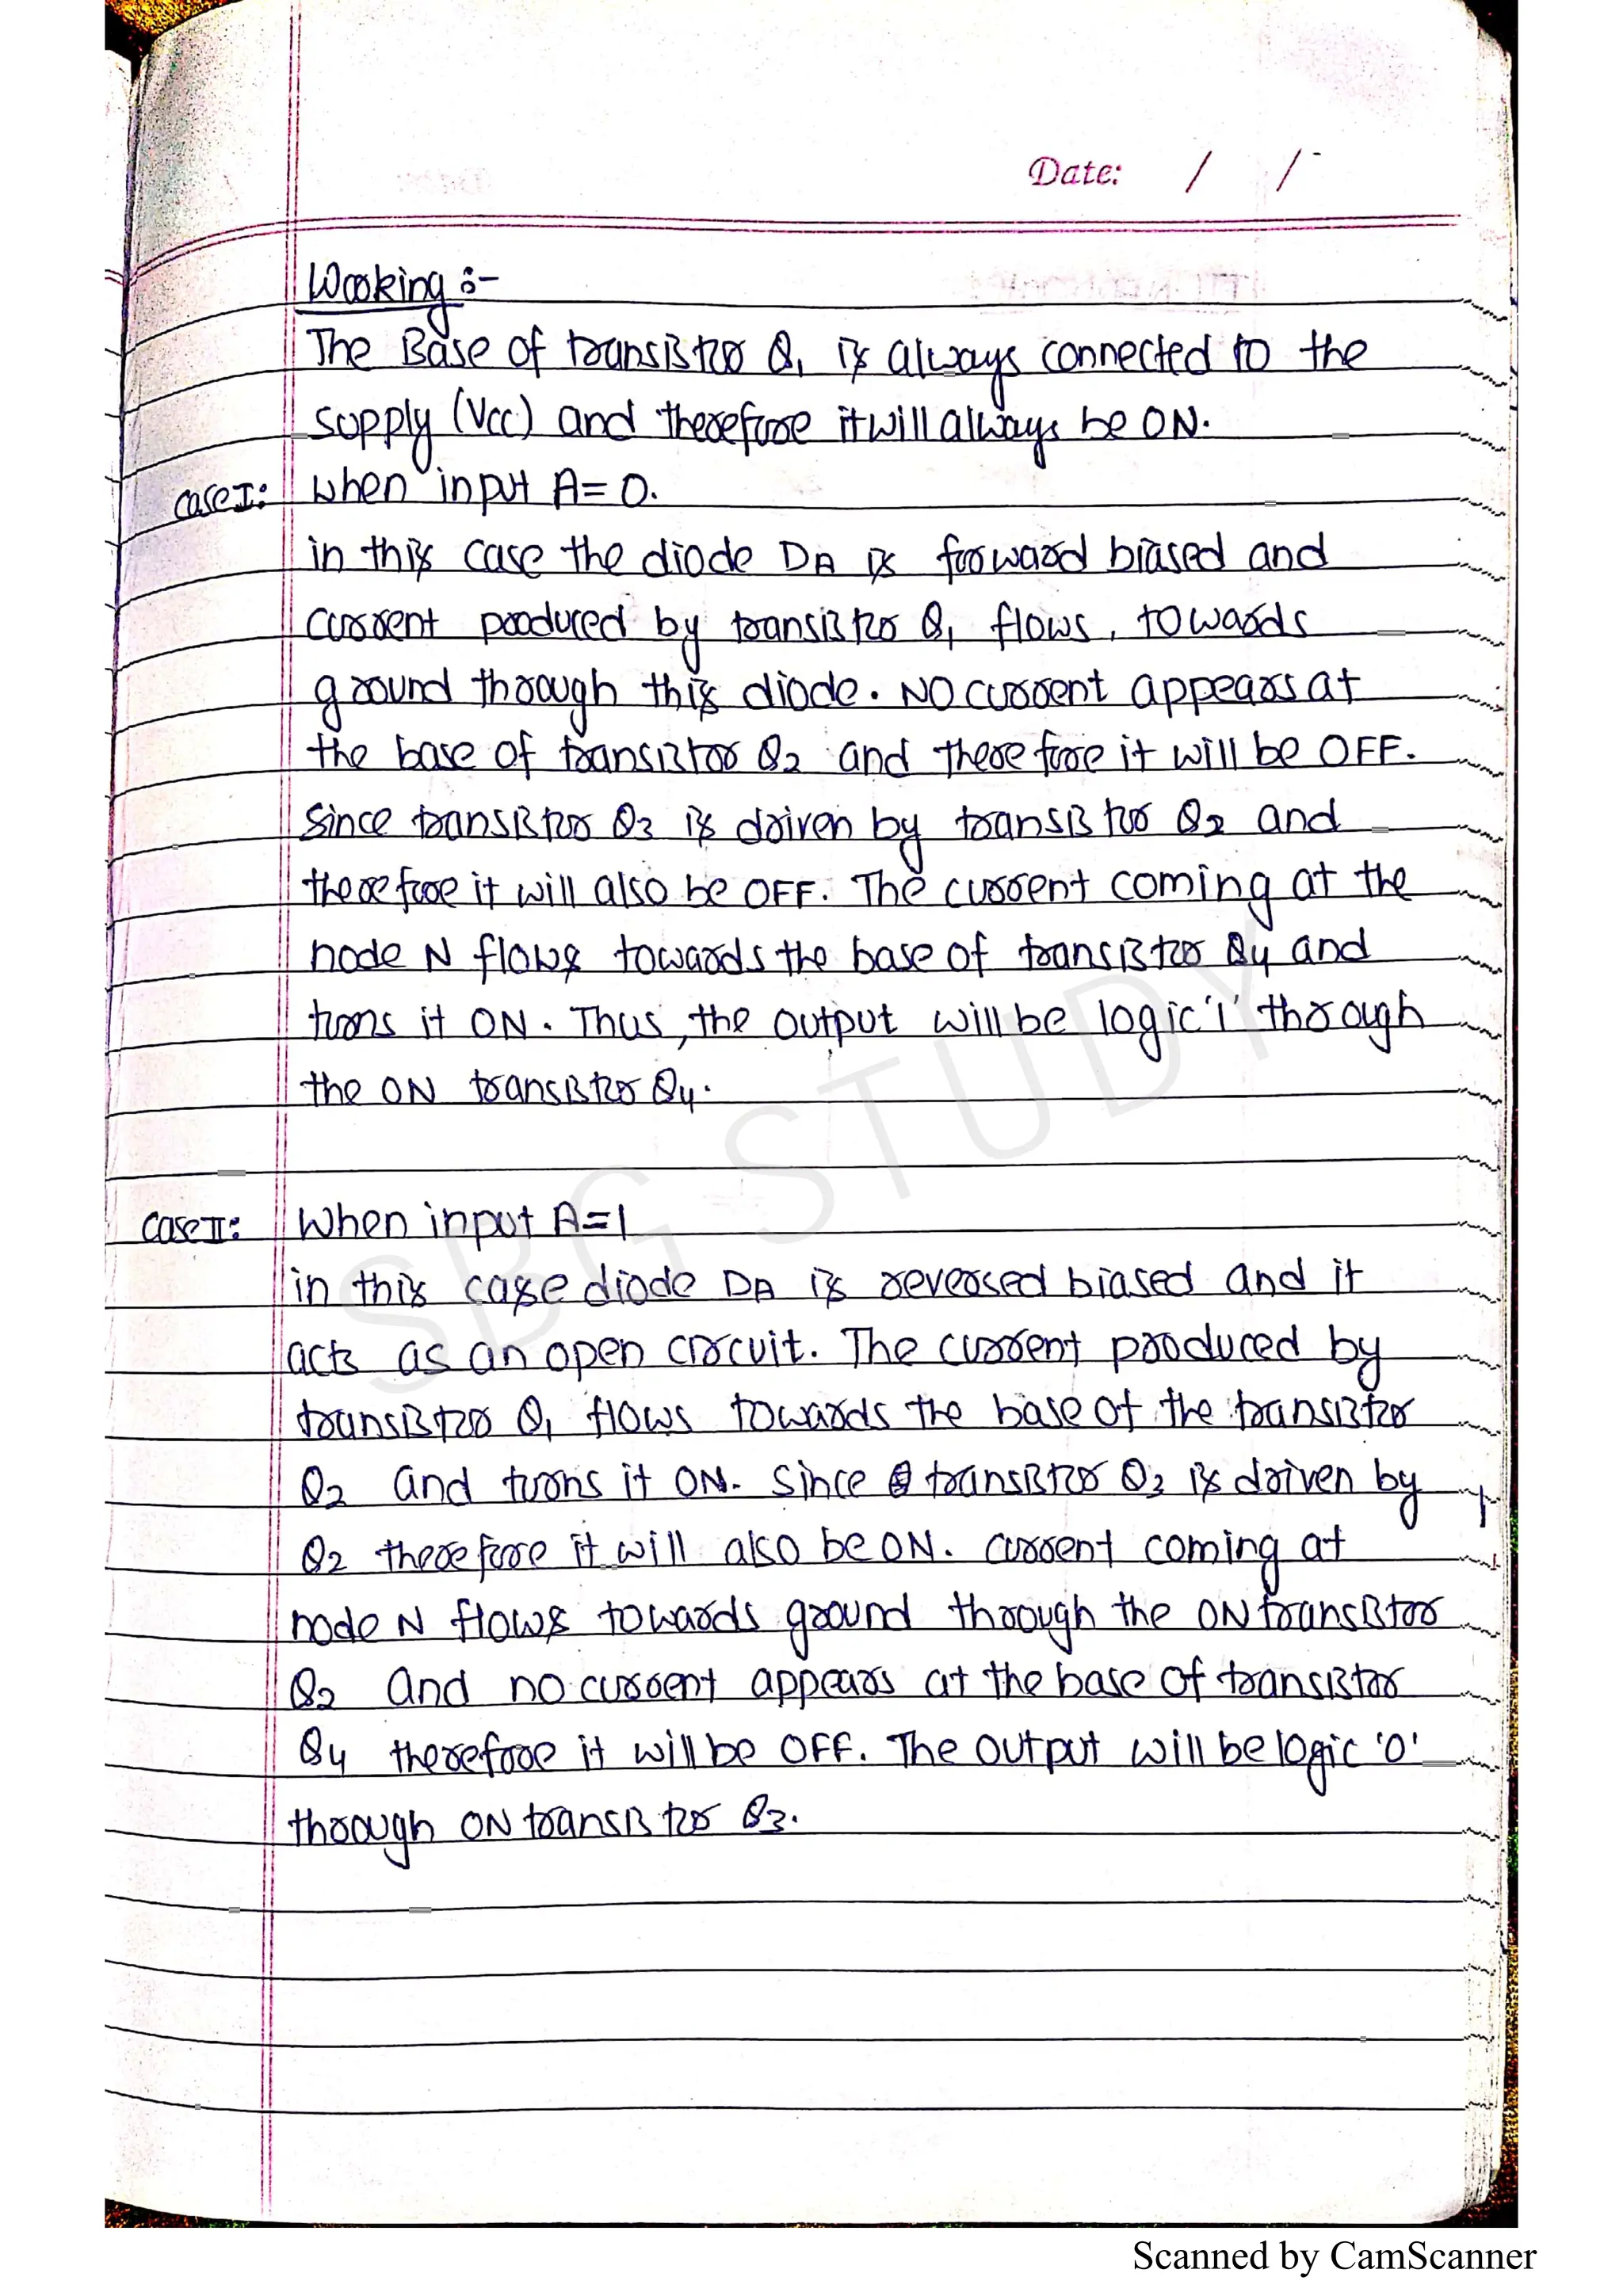 Date: / /
Working :-
The Base of transistor Q1 is always connected to the
supply (Vcc) and therefore it will always be ON.
case I: when input A= 0.
in this case the diode DA is forward biased and
current produced by transistor Q1 flows, towards
ground through this diode. NO current appears at
the base of transistor Q2 and therefore it will be OFF.
Since transistor Q3 is driven by transistor Q2 and
therefore it will also be OFF. The current coming at the
node N flows towards the base of transistor Q4 and
turns it ON. Thus, the output will be logic '1' through
the ON transistor Q4.
case II: When input A=1
in this case diode DA is reversed biased and it
acts as an open circuit. The current produced by
transistor Q1 flows towards the base of the transistor
Q2 and turns it ON. Since transistor Q3 is driven by
Q2 therefore it will also be ON. current coming at
node N flows towards ground through the ON transistor
Q2 and no current appears at the base of transistor
Q4 therefore it will be OFF. The output will be logic '0'
through ON transistor Q3.
SBG STUDY
Scanned by CamScanner